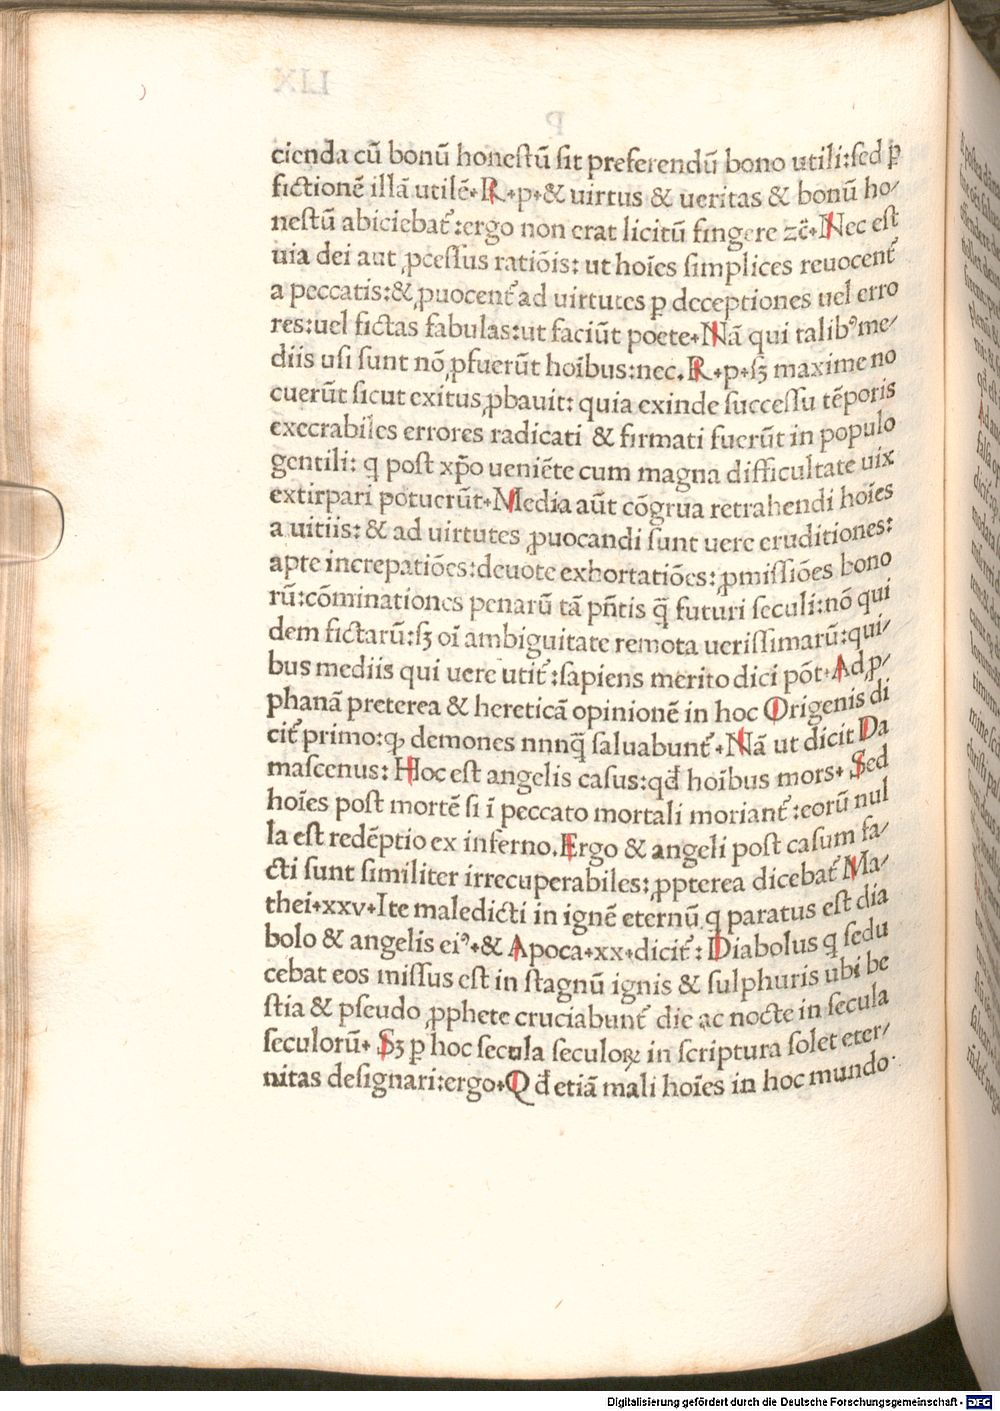 cienda cū bonū honestū sit preferendū bono utili:sed ꝑ
fictionē illā utilē.R.p.& uirtus & ueritas & bonū ho⸗
nestū abiciebat᷑:ergo non erat licitū fingere zc̄.Nec est
uia dei aut ꝓcessus ratiōis: ut hoīes simplices reuocent᷑
a peccatis:&ꝓuocent᷑ ad uirtutes ꝑ deceptiones uel erro
res:uel fictas fabulas:ut faciūt poete.Nā qui talibꝰme⸗
diis usi sunt nō ꝓfuerūt hoībus:nec.R.p.sꝫ maxime no
cuerūt sicut exitus ꝓbauit: quia exinde successu tēporis
execrabiles errores radicati & firmati fuerūt in populo
gentili: q post xp̄o ueniēte cum magna difficultate uix
extirpari potuerūt.Media aūt cōgrua retrahendi hoīes
a uitiis: & ad uirtutes ꝓuocandi sunt uere eruditiones:
apte increpatiōes:deuote exhortatiōes: ꝓmissiōes bono
rū:cōminationes penarū tā pn̄tis q̄ futuri seculi:nō qui
dem fictarū:sꝫ oī ambiguitate remota uerissimarū:qui⸗
bus mediis qui uere utit᷑:sapiens merito dici pōt.Ad ꝓ⸗
phanā preterea & hereticā opinionē in hoc Origenis di
cit᷑ primo:ꝙ demones nnnq̄ saluabunt᷑.Nā ut dicit Da
mascenus: Hoc est angelis casus:qđ hoībus mors. Sed
hoīes post mortē si ī peccato mortali moriant᷑:eorū nul
la est redēptio ex inferno.Ergo & angeli post casum fa⸗
cti sunt similiter irrecuperabiles:ꝓpterea dicebat᷑ Ma⸗
thei.xxv.Ite maledicti in ignē eternū q paratus est dia
bolo & angelis eiꝰ.& Apoca.xx.dicit᷑: Diabolus q sedu
cebat eos missus est in stagnū ignis & sulphuris ubi be
stia & pseudo ꝓphete cruciabunt᷑ die ac nocte in secula
seculorū. Sꝫ ꝑ hoc secula seculoꝝ in scriptura solet eter⸗
nitas designari:ergo.Qđ etiā mali hoīes in hoc mundo
Digitalisierung gefördert durch die Deutsche Forschungsgemeinschaft - DFG